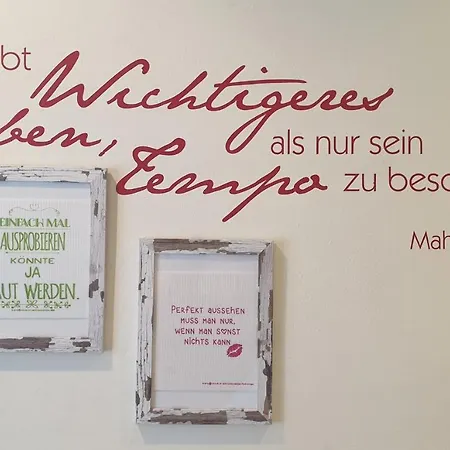 bt Wichtigeres
ben, als nur sein
Tempo zu besc
Mah
EINFACH MAL
AUSPROBIEREN
KÖNNTE
JA
UT WERDEN.
PERFEKT AUSSEHEN
MUSS MAN NUR,
WENN MAN SONST
NICHTS KANN